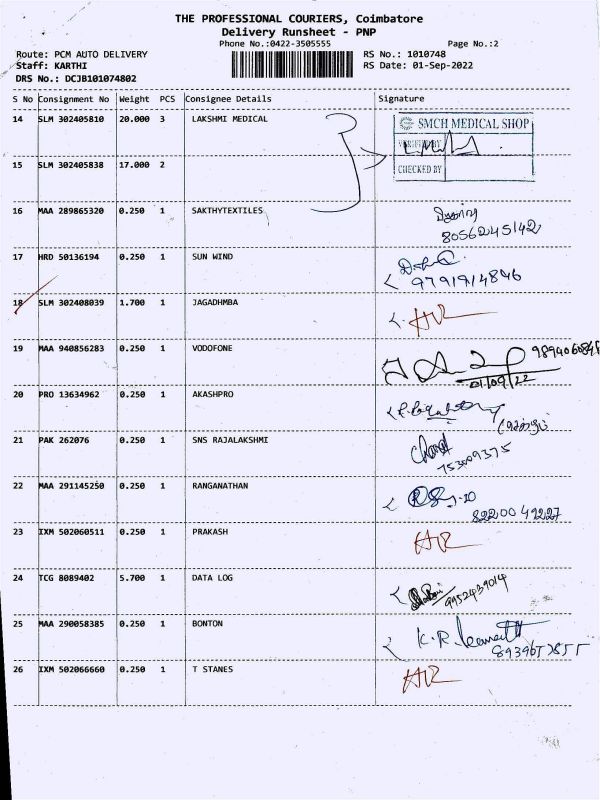 THE PROFESSIONAL COURIERS, Coimbatore
Delivery Runsheet - PNP
Phone No.:0422-3505555 Page No.:2
Route: PCM AUTO DELIVERY RS No.: 1010748
Staff: KARTHI RS Date: 01-Sep-2022
DRS No.: DCJB101074802
S No Consignment No Weight PCS Consignee Details Signature
14 SLM 302405810 20.000 3 LAKSHMI MEDICAL
SMCH MEDICAL SHOP
VERIFIED BY
15 SLM 302405838 17.000 2
CHECKED BY
16 MAA 289865320 0.250 1 SAKTHYTEXTILES
8056245142
17 HRD 50136194 0.250 1 SUN WIND
9791914846
18 SLM 302408039 1.700 1 JAGADHMBA
19 MAA 940856283 0.250 1 VODOFONE
01/09/22
20 PRO 13634962 0.250 1 AKASHPRO
21 PAK 262076 0.250 1 SNS RAJALAKSHMI
22 MAA 291145250 0.250 1 RANGANATHAN
8220049227
23 IXM 502060511 0.250 1 PRAKASH
24 TCG 8089402 5.700 1 DATA LOG
9952439014
25 MAA 290058385 0.250 1 BONTON
K.R.
26 IXM 502066660 0.250 1 T STANES